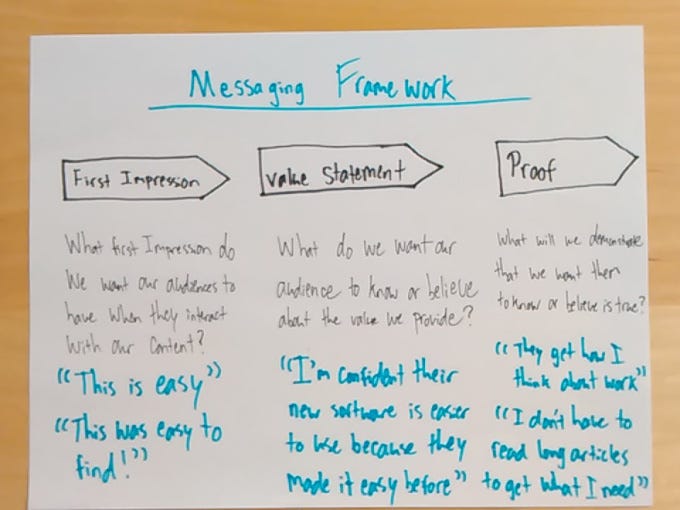 Messaging Framework
First Impresson
Value Statement
Proof
What first Impression do
We want our audiences to
have when they interact
with our content?
"This is easy"
"This was easy to
find!"
What do we want our
audience to know or believe
about the value we provide?
"I'm confident their
new software is easier
to use because they
made it easy before"
What will we demonstrate
that we want them
to know or believe is true?
"They get how I
think about work"
"I don't have to
read long articles
to get what I need"